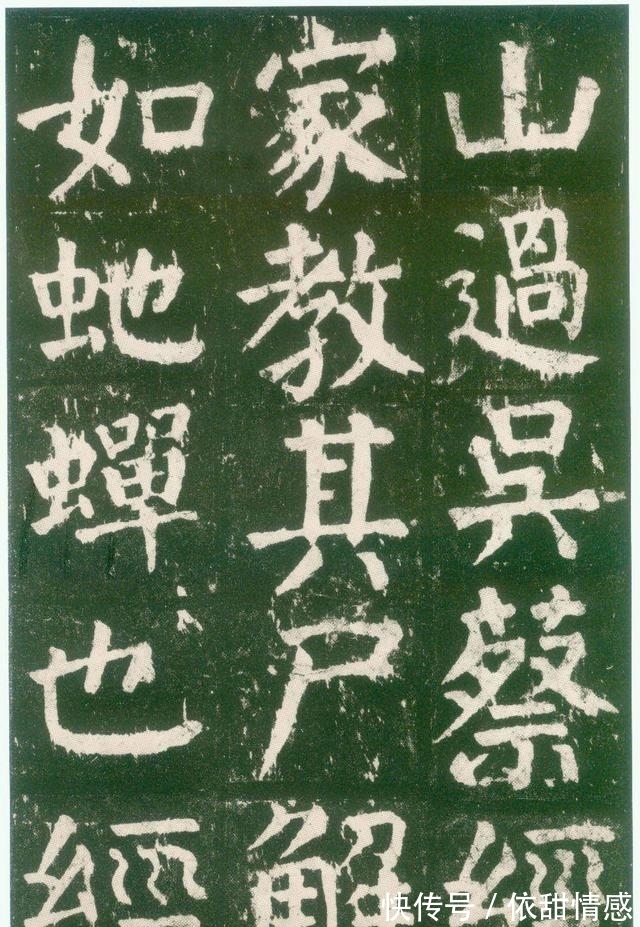 山過吳蔡經
家教其尸解
如虵蟬也經
快传号/依甜情感